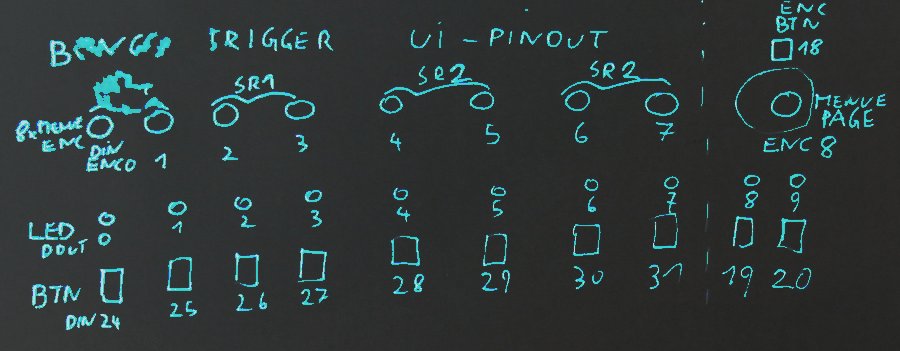 TRIGGER UI - PINOUT
ENC
BTN
18
SR1 SR2 SR2
8x MENUE
ENC
DIN
ENC0 1 2 3 4 5 6 7
MENUE
PAGE
ENC 8
LED
DOUT
0 1 2 3 4 5 6 7 8 9
BTN
DIN 24 25 26 27 28 29 30 31 19 20